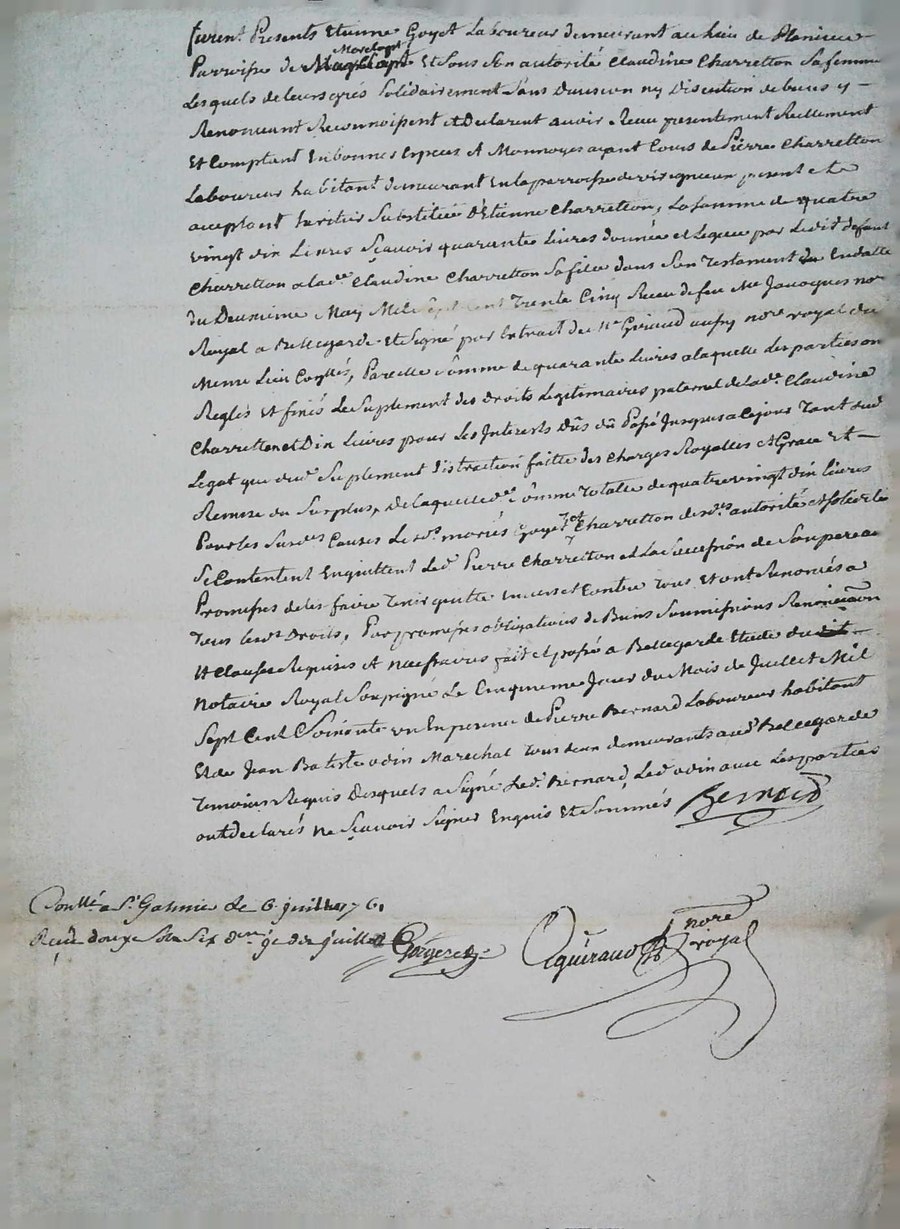 furent Presents Etienne Goyet Laboureur demeurant au lieu de
Marclopt
Parroisse de Et Sous Son autorité Claudine Charretton Sa femme
Lesquels de leurs gres Solidairement Sans Division ny Discution de biens y
Renoncant Reconnoissent et Declarent avoir Receu presentement Reellement
Et Comptant En bonnes Especes et Monnoyes ayant Cours de Pierre Charretton
Laboureur habitant demeurant En la parroisse de present et
acceptant heritier Substitué d'Etienne Charretton, La Somme de quatre
vingt dix Livres Sçavoir quarante Livres donnée et Leguée par Ledit defunt
Charretton a lade. Claudine Charretton Sa fille dans Son Testament En datte
du Deuxième May Mil Sept Cent Trente Cinq Receu de feu Me Jacques nore
Royal a Bellegarde et Signé par Extrait de Me Giraud aussy nore royal du
Meme Lieu Conllés, Pareille Somme de quarante Livres a laquelle Les parties on
Reglés et finés Le Suplement des Droits Legitimaires paternel de lade. Claudine
Charretton et Dix Livres pour Les Interests Dûs du Passé Jusques a Ce jour Tant dud.
Legat que dud. Suplement Distraction faitte des Charges Royalles et Grace Et
Remise du Surplus, De laquelle de. Somme Totalle de quatre vingt dix livres
Pour les Susdes. Causes Les ds. mariés Goyet et Charretton desdes. autorité et
Se Contentent En quittent Led. Pierre Charretton et La Succession de Son pere avec
Promesses de les faire Tenir quitte Envers et Contre Tous Et ont Renoncés a
Tous leurs Droits, Par promesses obligations de Biens Soumissions Renonciaon
Et Clauses Requises et necessaires fait et passé a Bellegarde Etude du
Notaire Royal Soussigné Le Cinquieme Jour du Mois de Juillet Mil
Sept Cent Soixante un En presence de Pierre Bernard Laboureur habitant
Et de Jean Batiste odin Marechal tous deux demeurants aud. Bellegarde
Temoins Requis Desquels a Signé Led. Bernard, Led. odin avec Les parties
ont declarés ne Sçavoir Signer Enquis Et Sommés Bernard
Conllé a St. Galmier Le 6 juillet 1761
Reçu douze Sols Six
nore
royal